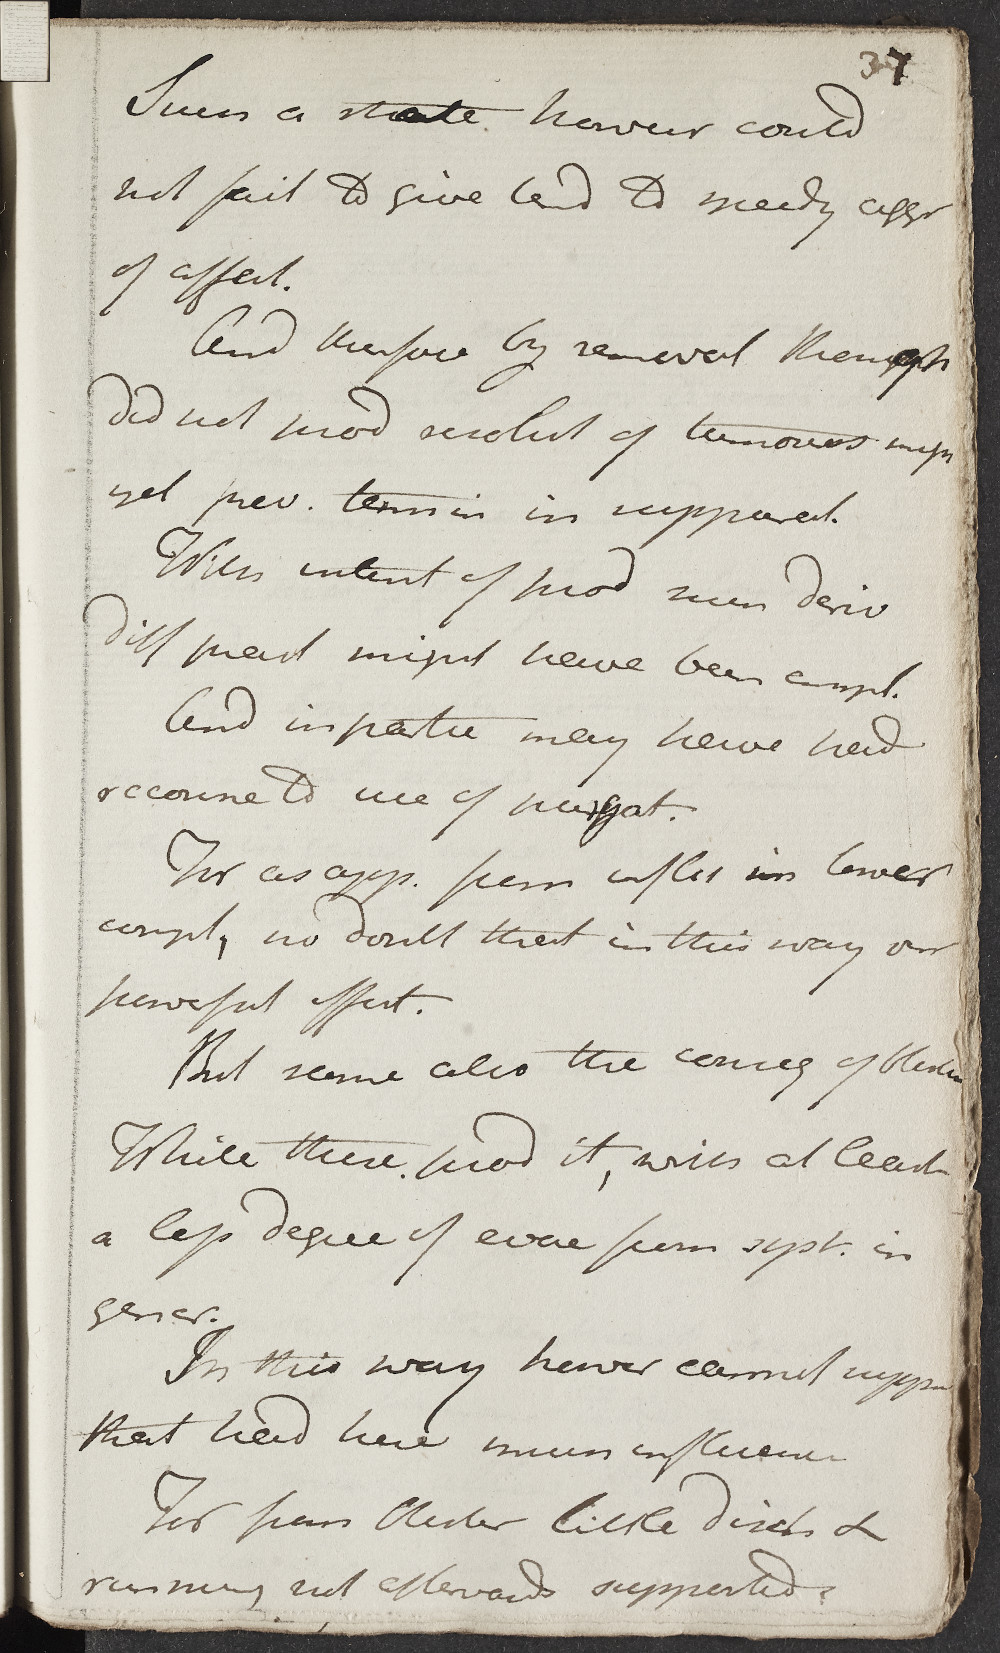 37
Such a state however could
not fail to give tend to speedy aggr
of affect.
And therefore by removal though
did not prod resolut of tumours migh
yet prev. termin in suppurat.
With intent of prod such deriv
diff pract might have been empl.
And in partic may have had
recourse to use of purgat.
For as app. from influ in lower
compl, no doubt that in this way ver
powerful effect.
But same also the conseq of blister
While these prod it, with at least
a less degree of evac from syst. in
gener.
In this way howev cannot suppo
that had here much influence
For from blister little disch &
running not afterwards supported.